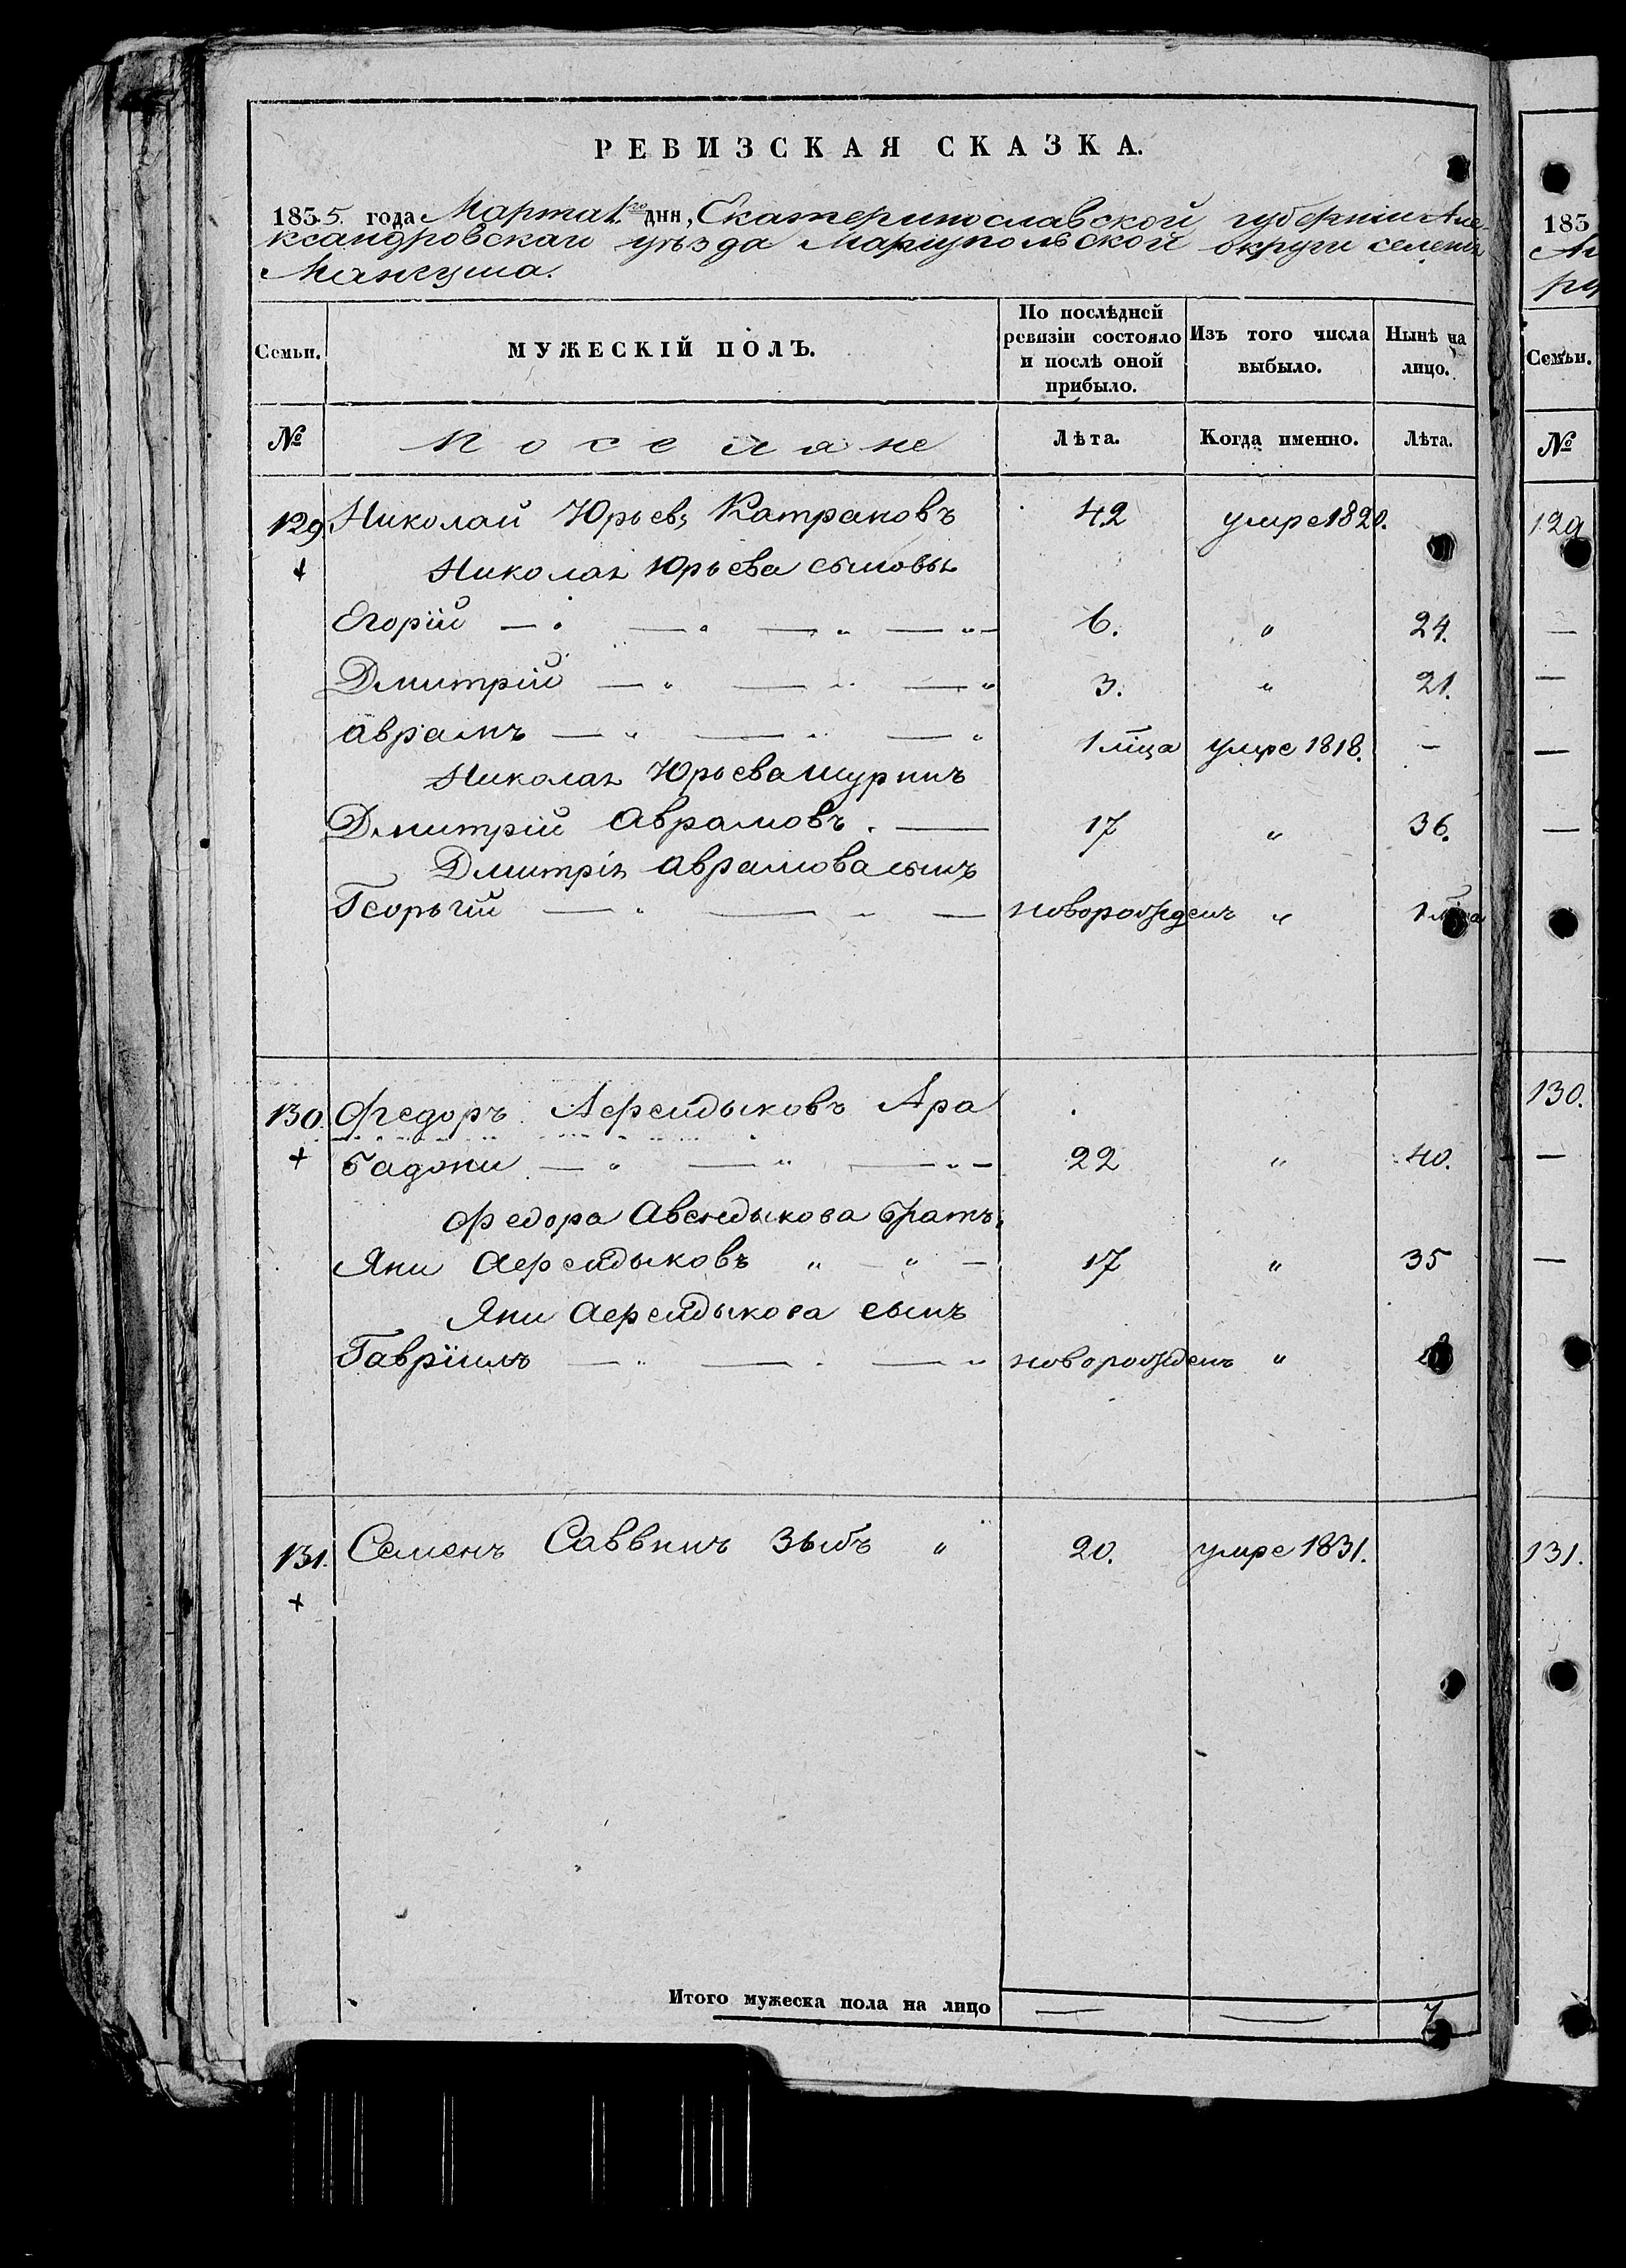 РЕВИЗСКАЯ СКАЗКА.
1835. года Марта 1го дня, Екатеринославской губерніи Але
ксандровскаго уѣзда Маріупольской округи селенія
Мангуша.
Семьи. МУЖЕСКІЙ ПОЛЪ. По послѣдней ревизіи состояло и послѣ оной прибыло. Изъ того числа выбыло. Нынѣ на лицо.
№ Поселяне Лѣта. Когда именно. Лѣта.
129 Николай Юрьевъ Катрановъ 42 умре 1820.
Николая Юрьева сыновья
Егорій — " — " — " — " — 6. " 24.
Дмитрій — " — " — " 3. " 21.
Аврамъ — " — " — " 1 мца умре 1818. —
Николая Юрьева шуринъ
Дмитрій Аврамовъ. — 17 " 36.
Дмитрія Аврамова сынъ
Георьгій — " — " — новорожденъ " 1 мца
130. Федоръ Аерендыковъ Ара
+ баджи — " — " — " — 22 " 40.
Федора Авендыкова братъ.
Яни Аерендыковъ " — " — 17 " 35
Яни Аерендыкова сынъ
Гавріилъ — " — " — " новорожденъ "
131. Семенъ Саввинъ Зыбъ " 20. умре 1831.
+
Итого мужеска пола на лицо — — 7
183
Семьи.
№
129
130.
131.